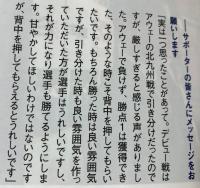 ―サポーターの皆さんにメッセージをお
願いします
「実は一つ思ったことがあって。デビュー戦は
アウェーの北九州戦で引き分けだったので
すが、厳しすぎると感じる声がありまし
た。アウェーで負けず、勝点1は獲得でき
た。そのような時こそ背中を押してもらい
たいです。もちろん勝った時は良い雰囲気
ですが、引き分けた時も良い雰囲気を作っ
ていただいた方が選手はうれしいですし、
それが力になり選手も勝てるようにしま
す。甘やかしてほしいわけではないのです
が、背中を押してもらえるとうれしいです」